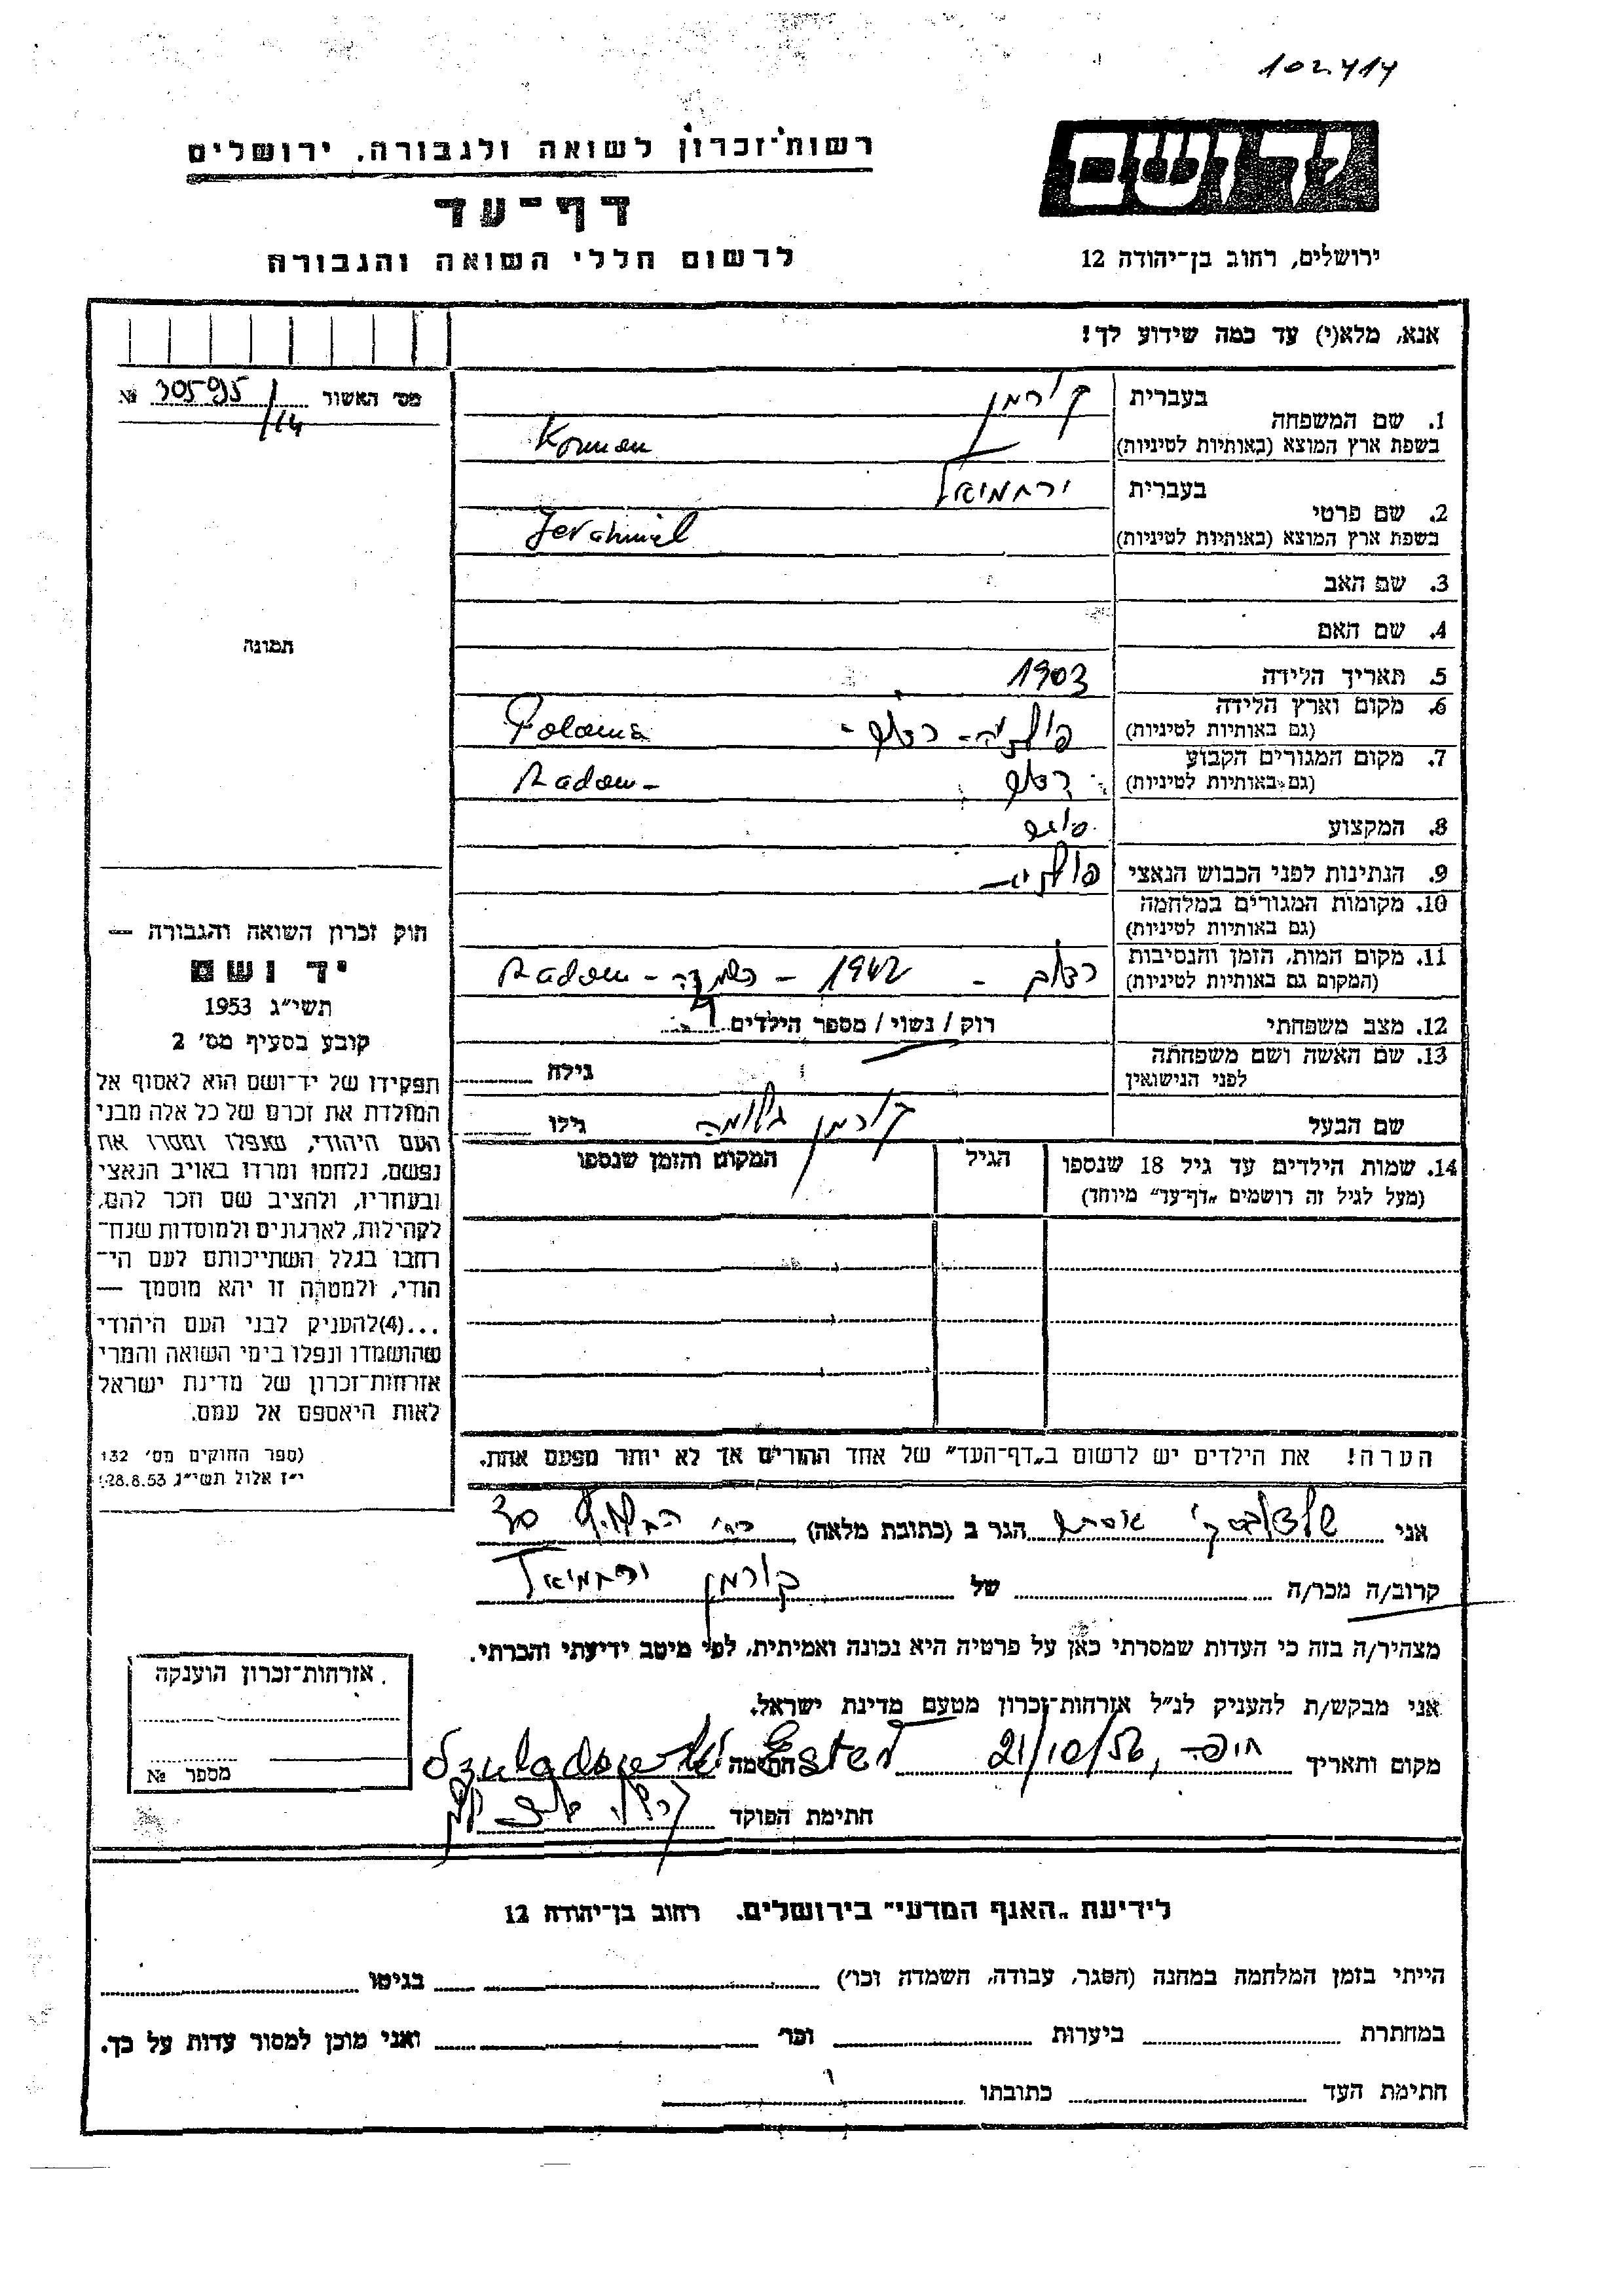 102414
רשות־זכרון לשואה ולגבורה. ירושלים
דף־עד
לרשום חללי השואה והגבורה
ידושם
ירושלים, רחוב בן־יהודה 12
אנא, מלא(י) עד כמה שידוע לך!
מס' האשור 30595/14 №
1. שם המשפחה בעברית קורמן
בשפת ארץ המוצא (באותיות לטיניות) Korman
2. שם פרטי בעברית ירחמיאל
בשפת ארץ המוצא (באותיות לטיניות) Jerahmiel
3. שם האב
4. שם האם
תמונה
5. תאריך הלידה 1903
6. מקום וארץ הלידה פולניה - רדום - Polania
(גם באותיות לטיניות)
7. מקום המגורים הקבוע רדום Radom -
(גם באותיות לטיניות)
8. המקצוע
9. הנתינות לפני הכבוש הנאצי פולניה
10. מקומות המגורים במלחמה
(גם באותיות לטיניות)
11. מקום המות, הזמן והנסיבות רדום - 1942 - השמדה - Radom
(המקום גם באותיות לטיניות)
12. מצב משפחתי רוק / נשוי / מספר הילדים
13. שם האשה ושם משפחתה גילה
לפני הנישואין
שם הבעל קורמן גילו
14. שמות הילדים עד גיל 18 שנספו הגיל המקום והזמן שנספו
(מעל לגיל זה רושמים „דף־עד" מיוחד)
הערה! את הילדים יש לרשום ב„דף־העד" של אחד ההורים אך לא יותר מפעם אחת.
חוק זכרון השואה והגבורה —
יד ושם
תשי"ג 1953
קובע בסעיף מס' 2
תפקידו של יד־ושם הוא לאסוף אל
המולדת את זכרם של כל אלה מבני
העם היהודי, שנפלו ומסרו את
נפשם, נלחמו ומרדו באויב הנאצי
ובעוזריו, ולהציב שם וזכר להם,
לקהילות, לארגונים ולמוסדות שנח־
רחבו בגלל השתייכותם לעם הי־
הודי, ולמטרה זו יהא מוסמך —
...(4)להעניק לבני העם היהודי
שהושמדו ונפלו בימי השואה והמרי
אזרחות־זכרון של מדינת ישראל
לאות היאספם אל עמם.
(ספר החוקים מס' 132
י"ז אלול תשי"ג 28.8.53)
אני אסתר הגר ב (כתובת מלאה)
קרוב/ה מכר/ה של קורמן ירחמיאל
מצהיר/ה בזה כי העדות שמסרתי כאן על פרטיה היא נכונה ואמיתית, לפי מיטב ידיעתי והכרתי.
אני מבקש/ת להעניק לנ"ל אזרחות־זכרון מטעם מדינת ישראל.
מקום ותאריך חיפה, 21/10/56 חתימה Ester
חתימת הפוקד
אזרחות־זכרון הוענקה
מספר №
לידיעת „האנף המדעי" בירושלים. רחוב בן־יהודה 12
הייתי בזמן המלחמה במחנה (הסגר, עבודה, השמדה וכו') בגיטו
במחתרת ביערות וכו' ואני מוכן למסור עדות על כך.
חתימת העד כתובתו